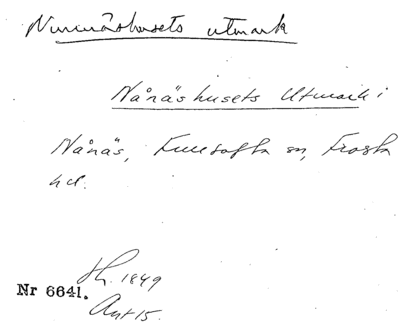 Nunnäshusets utmark
Nånäs husets Utmark i
Nånäs, Fulltofta sn, Frosta
hd.
Nr 6641.
Sk. 1849
Ant 15.